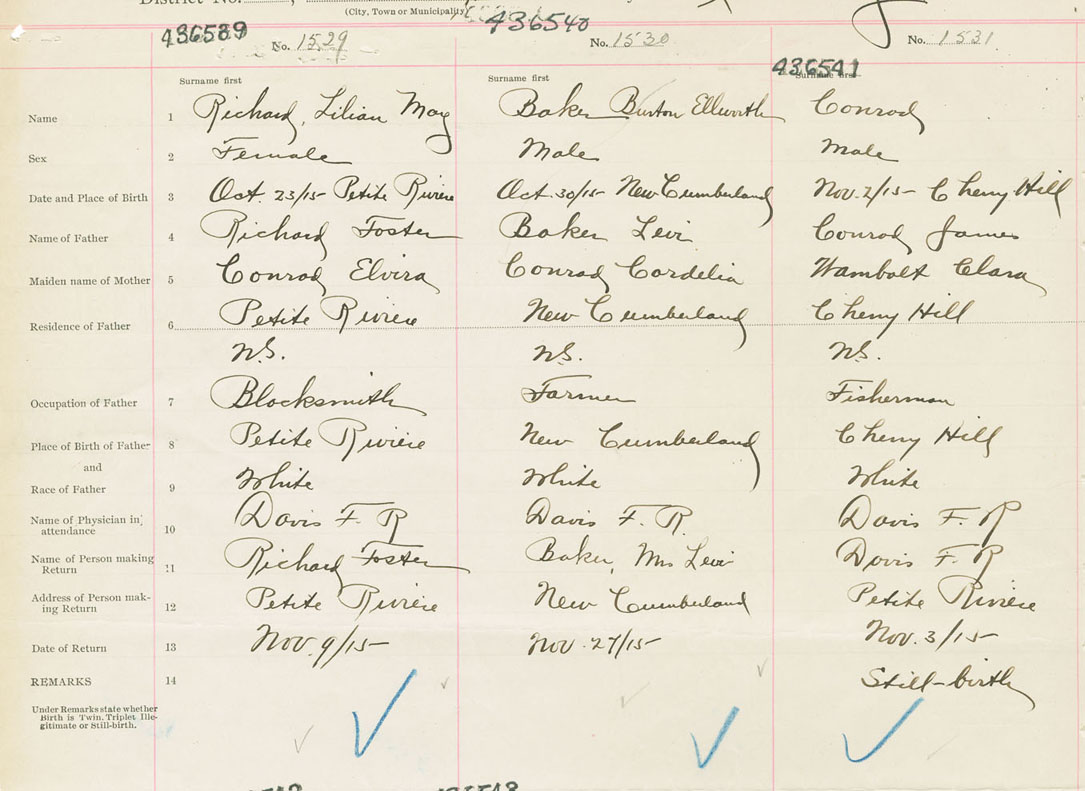 District No.
(City, Town or Municipality)
436539 436540
No. 1529 No. 1530 No. 1531
436541
Surname first Surname first Surname first
Name 1 Richard, Lilian May Baker Burton Ellworth Conrad
Sex 2 Female Male Male
Date and Place of Birth 3 Oct. 23/15 - Petite Riviere Oct. 30/15 New Cumberland Nov. 2/15 - Cherry Hill
Name of Father 4 Richard Foster Baker Levi Conrad James
Maiden name of Mother 5 Conrad Elvira Conrad Cordelia Wambolt Clara
Residence of Father 6 Petite Riviere New Cumberland Cherry Hill
N.S. N.S. N.S.
Occupation of Father 7 Blacksmith Farmer Fisherman
Place of Birth of Father 8 Petite Riviere New Cumberland Cherry Hill
and
Race of Father 9 White White White
Name of Physician in attendance 10 Davis F. R Davis F. R. Davis F. R
Name of Person making Return 11 Richard Foster Baker, Mrs Levi Davis F. R
Address of Person making Return 12 Petite Riviere New Cumberland Petite Riviere
Date of Return 13 Nov. 9/15 - Nov. 27/15 - Nov. 3/15 -
REMARKS 14 Still-birth
Under Remarks state whether
Birth is Twin, Triplet Ille-
gitimate or Still-birth.